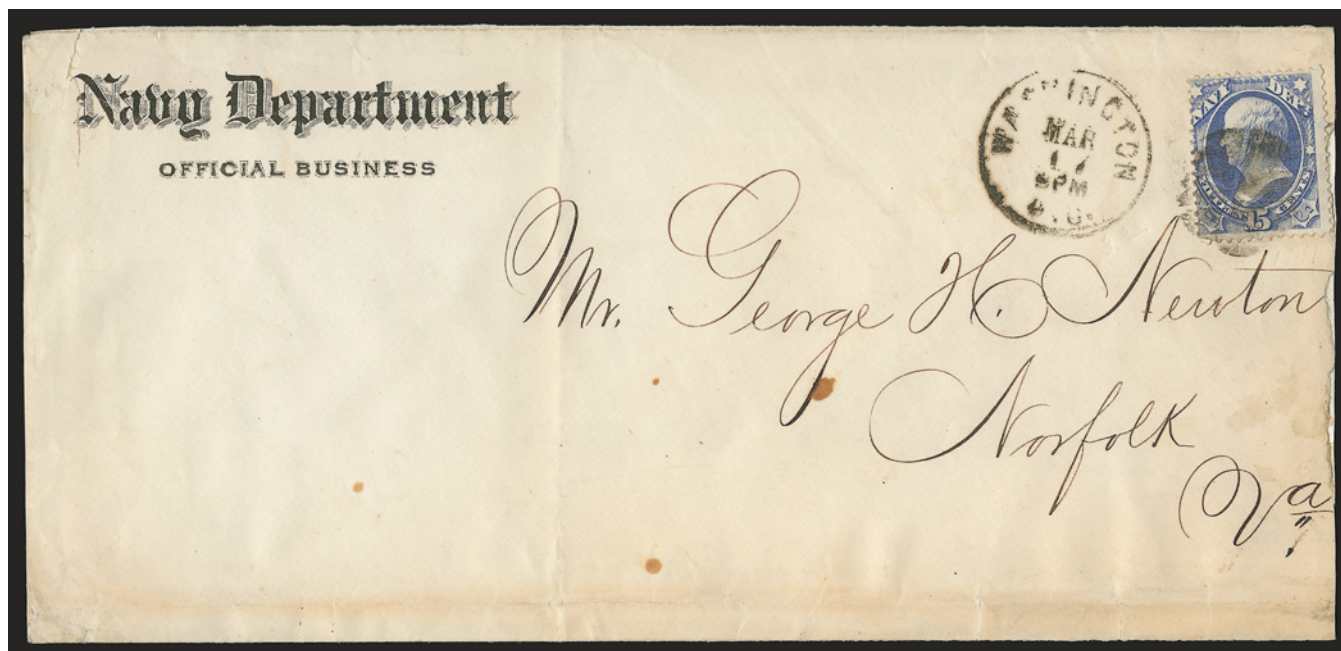 Navy Department
OFFICIAL BUSINESS
WASHINGTON
MAR
17
PM
D.C.
NAVY DEPT
15 CENTS
Mr. George H. Newton
Norfolk
Va